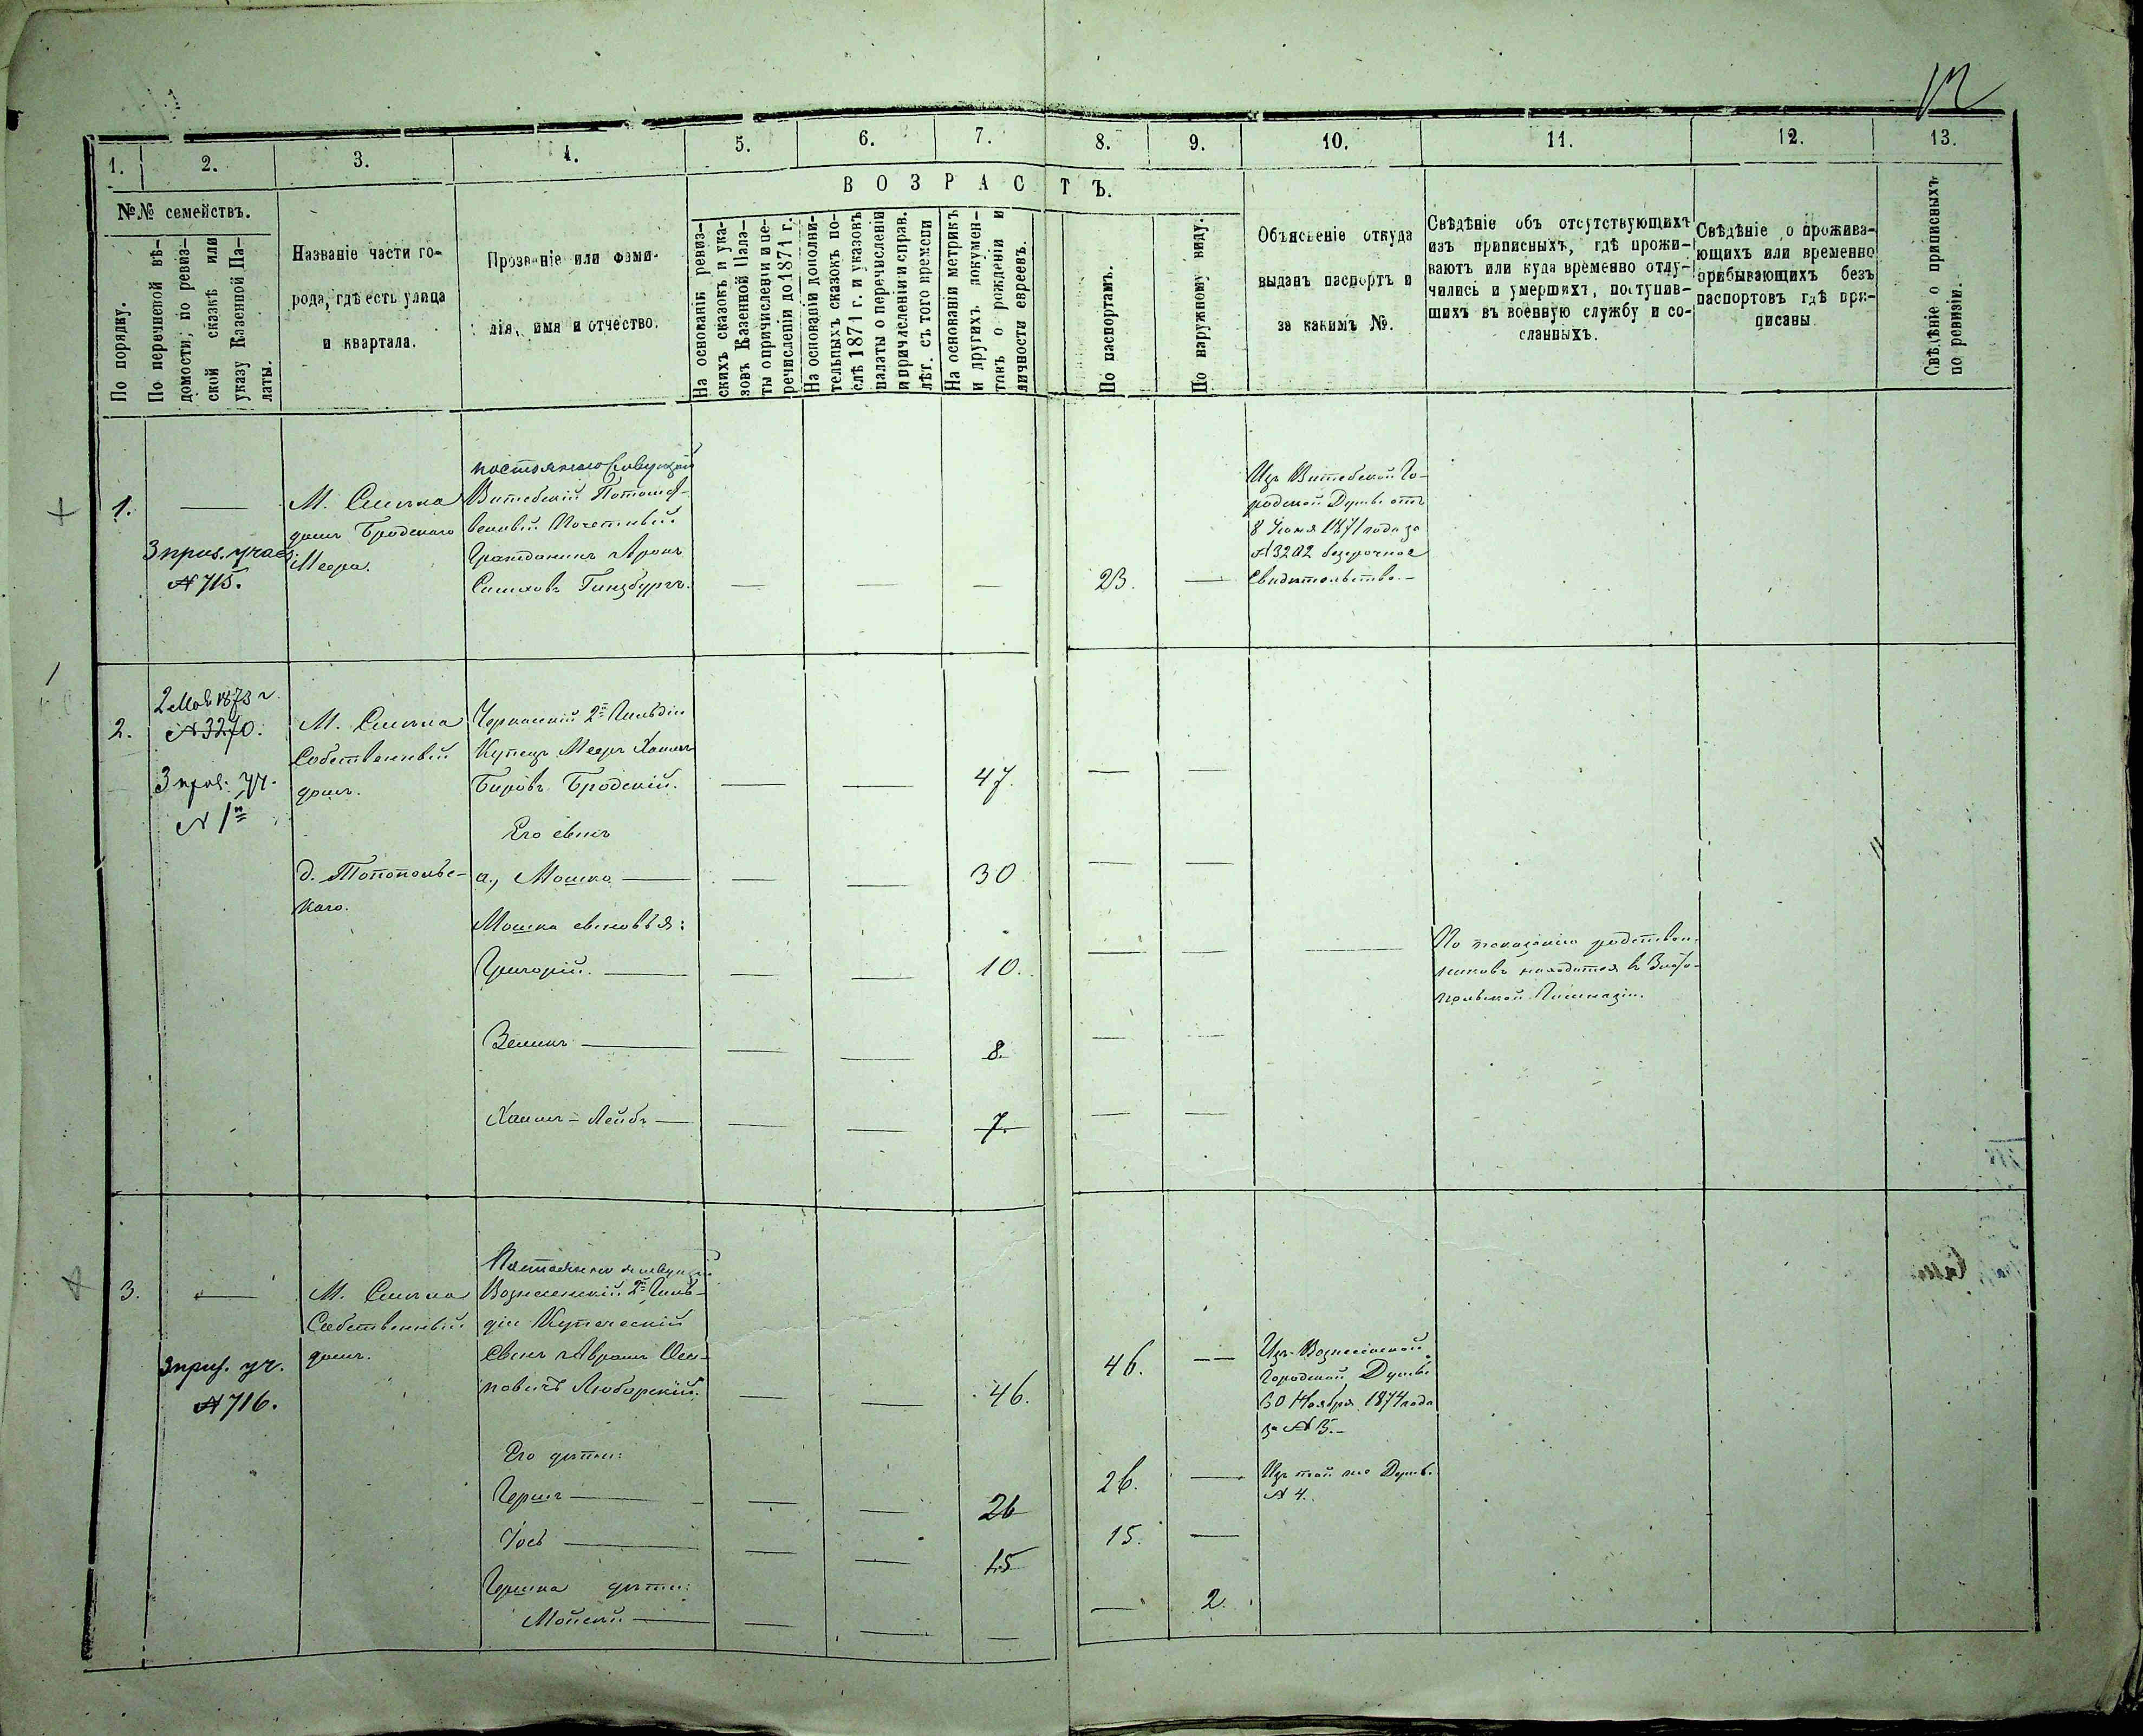 1.
2.
3.
4.
5.
6.
7.
8.
9.
10.
11.
12.
13.
ВОЗРАСТЪ.
№№ семействъ.
По порядку.
По перечневой вѣ-
домости, по ревиз-
ской сказкѣ или
указу Казенной Па-
латы.
Названіе части го-
рода, гдѣ есть улица
и квартала.
Прозваніе или фами-
лія, имя и отчество.
На основаніи ревиз-
скихъ сказокъ и ука-
зовъ Казенной Пала-
ты о причисленіи и пе-
речисленіи до 1871 г.
На основаніи дополни-
тельныхъ сказокъ по-
слѣ 1871 г. и указовъ
палаты о перечисленіи
и причисленіи и справ.
лѣт. съ того времени
На основаніи метрикъ
и другихъ докумен-
товъ о рожденіи и
личности евреевъ.
По паспортамъ.
По наружному виду.
Объясненіе откуда
выданъ паспортъ и
за какимъ №.
Свѣдѣніе объ отсутствующихъ
изъ приписныхъ, гдѣ прожи-
ваютъ или куда временно отлу-
чились и умершихъ, поступив-
шихъ въ военную службу и со-
сланныхъ.
Свѣдѣніе о прожива-
ющихъ или временно
прибывающихъ безъ
паспортовъ гдѣ при-
писаны.
Свѣдѣніе о приписныхъ
по ревизіи.
1.
3 приз. учас.
№ 715.
М. Смѣла
домъ Бродскаго
Меера.
постоянно живущій
Витебскій Потомст-
венный Почетный
Гражданинъ Аронъ
Гинзбургъ.
23.
Изъ Витебской Го-
родской Думы отъ
8 Іюня 1871 года за
№ 3202 безсрочное
свидѣтельство.-
2.
2 Моб 1873 г.
№ 3270.
3 приз. уч.
№ 1й
М. Смѣла
Собственный
домъ.
д. Топопольс-
каго.
Черкаскій 2й Гильдіи
Купецъ Мееръ Хаимъ
Беровъ Бродскій.
47.
Его сынъ
а., Мошко
30
Мошка сыновья:
Григорій.
10.
По показанію родствен-
никовъ находится въ Злато-
польской Гимназіи.
Зелигъ
8.
Хаимъ-Лейбъ
7.
3.
3 приз. уч.
№ 716.
М. Смѣла
Собственный
домъ.
Постоянно живущій
Вознесенскій 2й Гиль-
діи Купеческій
Сынъ Аврамъ
Любарскій.
46.
46.
Изъ Вознесенской
Городской Думы
30 Ноября 1874 года
за № 3.-
Его дѣти:
Гершъ
26
26.
Изъ той же Думы.
№ 4.
Іось
15
15.
Гершка дѣти:
Мойсей
2.